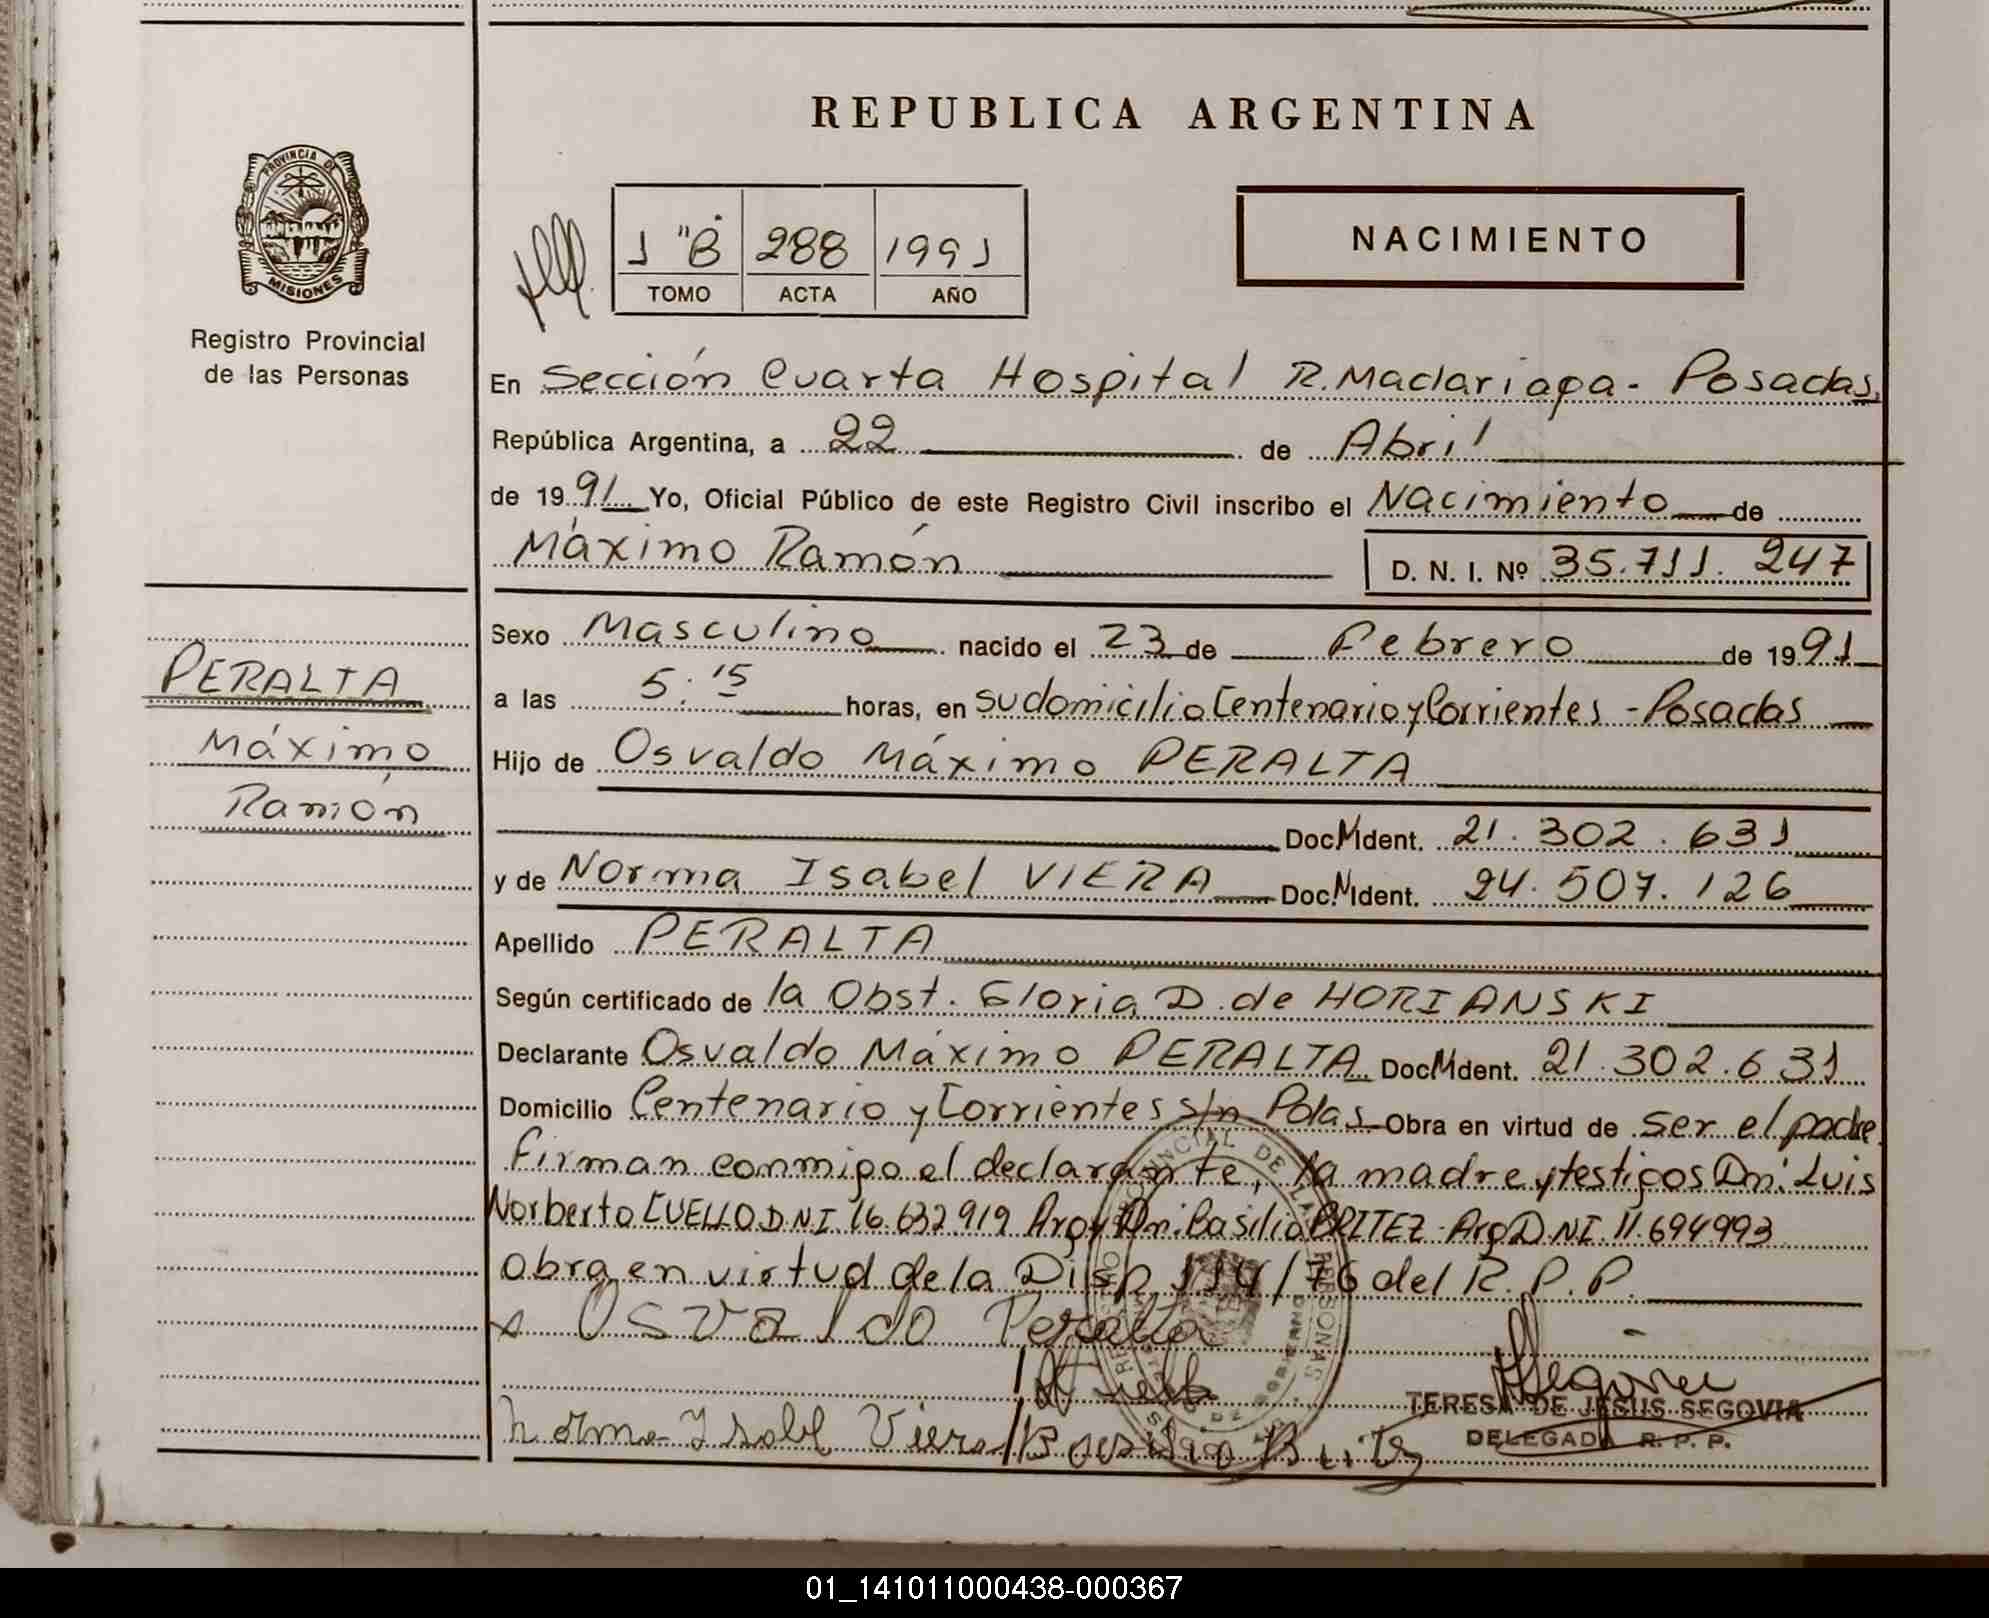 REPUBLICA ARGENTINA
PROVINCIA DE
MISIONES
Registro Provincial
de las Personas
1 "B" 288 1991
TOMO ACTA AÑO
NACIMIENTO
En Sección Cuarta Hospital R. Madariaga - Posadas,
República Argentina, a 22 de Abril
de 1991 Yo, Oficial Público de este Registro Civil inscribo el Nacimiento de
Máximo Ramón D. N. I. Nº 35.711.247
Sexo Masculino nacido el 23 de Febrero de 1991
a las 5:15 horas, en su domicilio Centenario y Corrientes - Posadas
Hijo de Osvaldo Máximo PERALTA
Doc. Ident. 21.302.631
y de Norma Isabel VIERA Doc. Ident. 24.507.126
Apellido PERALTA
Según certificado de la Obst. Gloria D. de HORIANSKI
Declarante Osvaldo Máximo PERALTA Doc. Ident. 21.302.631
Domicilio Centenario y Corrientes s/n Pdas Obra en virtud de ser el padre
firman conmigo el declarante, la madre y testigos Dn: Luis
Norberto CUELLO DNI 16.632.919 Arg y Dn: Basilio BRITEZ Arg DNI 11.694993
obra en virtud de la Disp 114/76 del R. P. P.
x Osvaldo Peralta
TERESA DE JESUS SEGOVIA
DELEGADA R. P. P.
Norma Isabel Viera
PERALTA
Máximo
Ramón
01_141011000438-000367